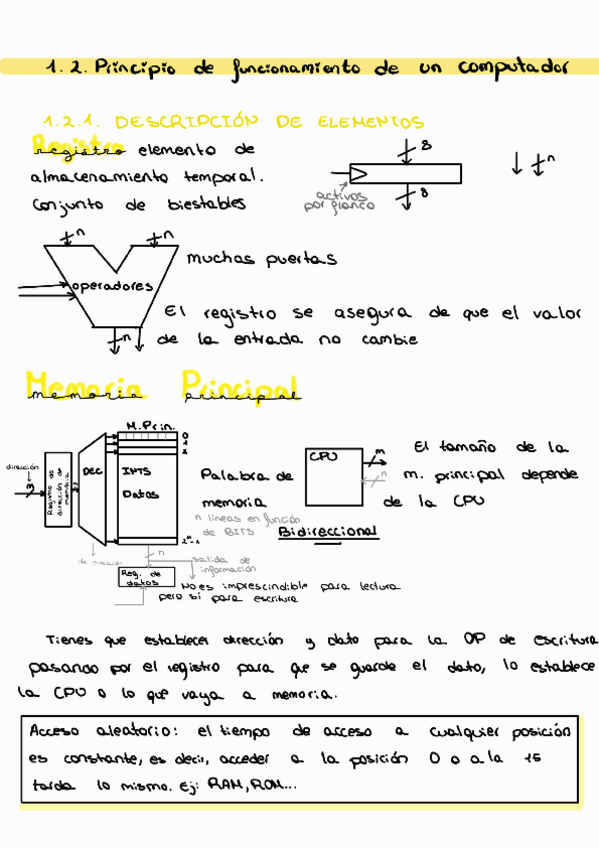 1.2. Principio de funcionamiento de un computador
1.2.1. DESCRIPCIÓN DE ELEMENTOS
Registro
registro elemento de
almacenamiento temporal.
Conjunto de biestables
8
8
activos
por flanco
n
n
n
operadores
n
muchas puertas
El registro se asegura de que el valor
de la entrada no cambie
Memoria Principal
memoria principal
M.Prin.
dirección
Registro de
dirección de
memoria
DEC
INTS
Datos
0
1
2
2ⁿ-1
n
Reg. de
datos
salida de
información
Palabra de
memoria
n líneas en función
de BITS
CPU
m
n
Bidireccional
El tamaño de la
m. principal depende
de la CPU
No es imprescindible para lectura
pero sí para escritura
Tienes que establecer dirección y dato para la OP de escritura
pasando por el registro para que se guarde el dato, lo establece
la CPU o lo que vaya a memoria.
Acceso aleatorio: el tiempo de acceso a cualquier posición
es constante, es decir, acceder a la posición 0 o a la 15
tarda lo mismo. ej: RAM, ROM...